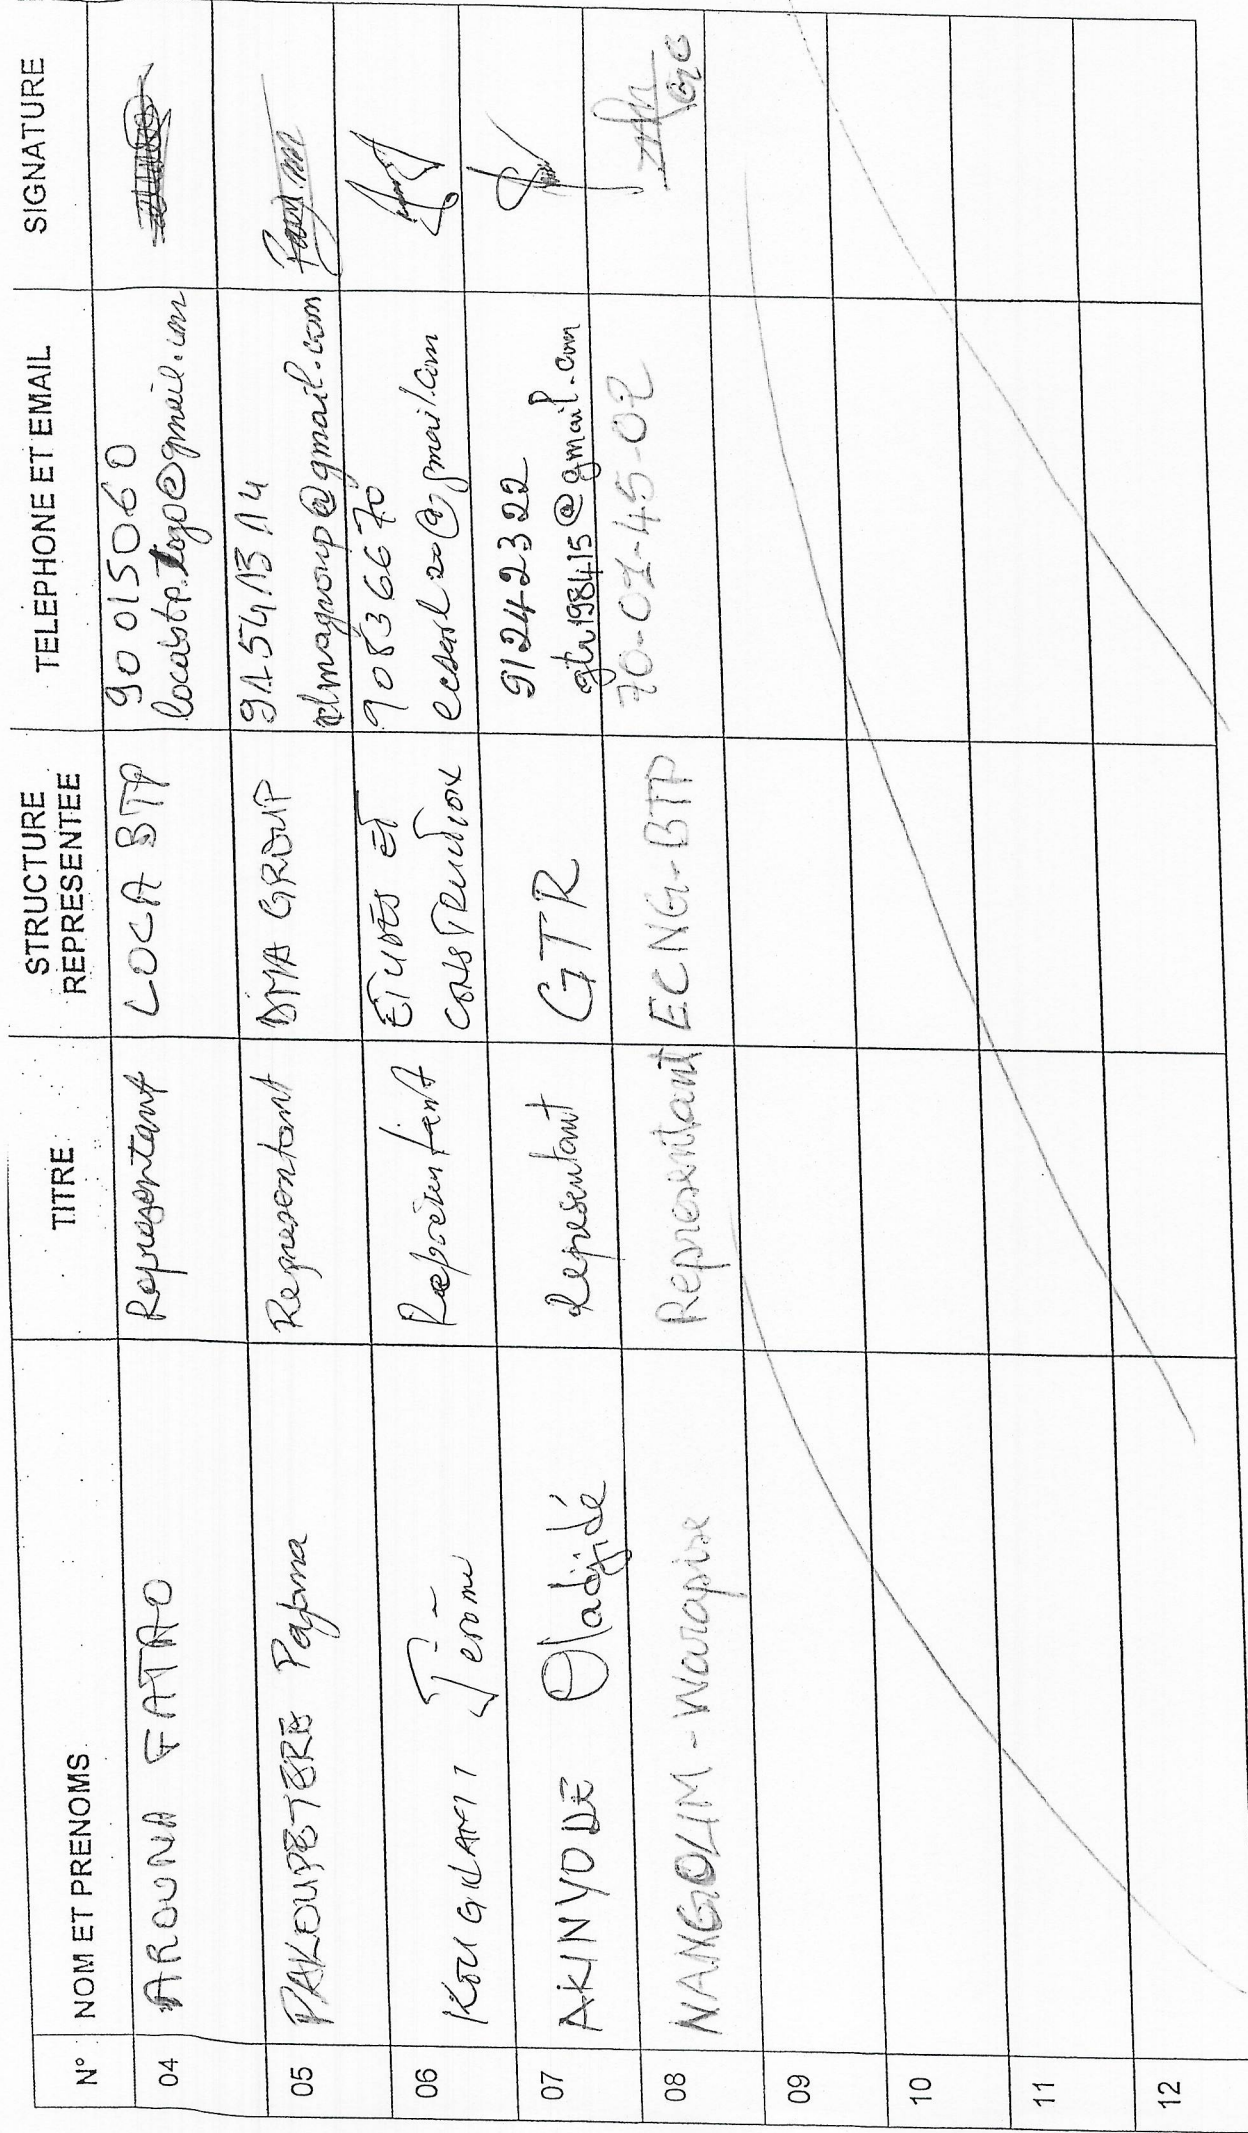 N° NOM ET PRENOMS TITRE STRUCTURE REPRESENTEE TELEPHONE ET EMAIL SIGNATURE
04 AROUNA FATAO Representant LOCA BTP 90015060
locabtp.togo@gmail.com
05 PAKOUPETERE Papma Representant DMA GROUP 91541314
dmagroup@gmail.com
06 KOUGLANI Jérome Représentant ETUDES ET 90836670
CONSTRUCTION @gmail.com
07 AKINYODE Oladjidé Representant GTR 91242322
gtr198415@gmail.com
08 NANGOLIM - Warapise Representant ECNG-BTP 70-01-45-02
09
10
11
12